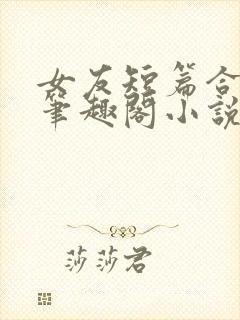 女友短篇合
筆趣閣小說
莎莎君